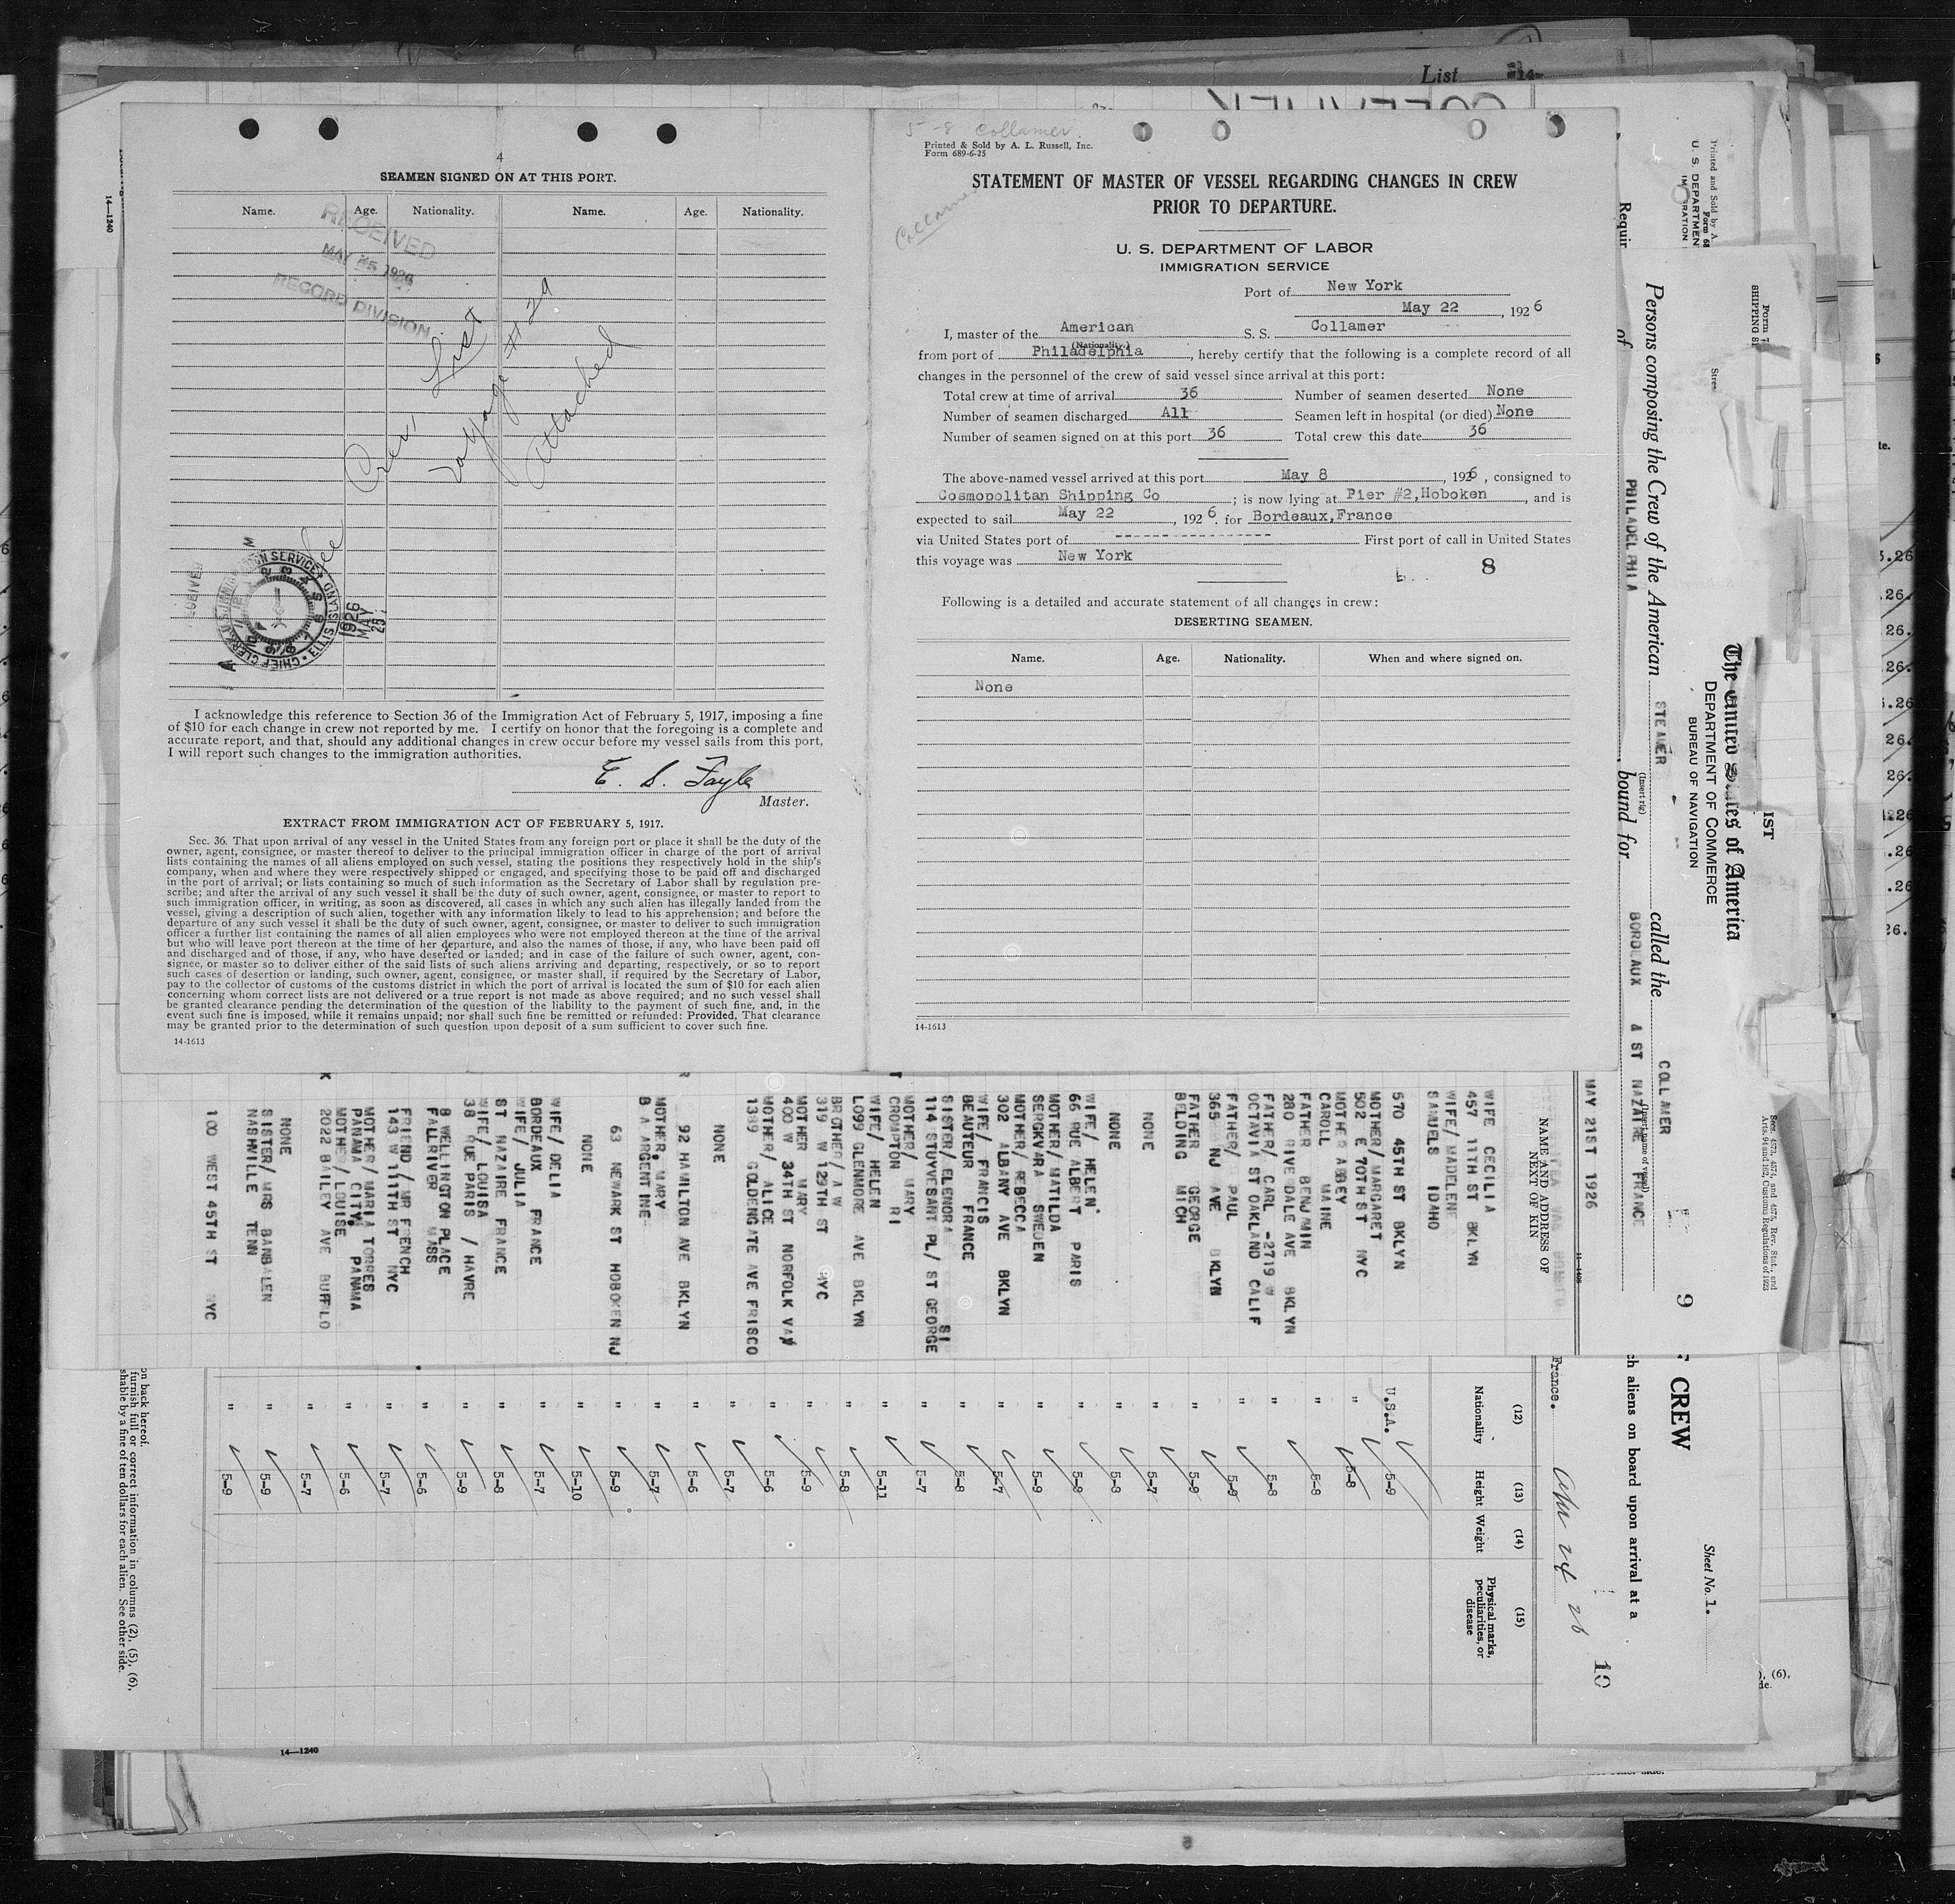 List
4
SEAMEN SIGNED ON AT THIS PORT.
Name. Age. Nationality. Name. Age. Nationality.
RECEIVED
MAY 25 1926
RECORD DIVISION
See Crew List
Voyage # 29
Attached
RECEIVED
CHIEF CLERK U.S. IMMIGRATION SERVICE ELLIS ISLAND
1926
MAY
25
I acknowledge this reference to Section 36 of the Immigration Act of February 5, 1917, imposing a fine
of $10 for each change in crew not reported by me. I certify on honor that the foregoing is a complete and
accurate report, and that, should any additional changes in crew occur before my vessel sails from this port,
I will report such changes to the immigration authorities.
E. S. Fayle
Master.
EXTRACT FROM IMMIGRATION ACT OF FEBRUARY 5, 1917.
Sec. 36. That upon arrival of any vessel in the United States from any foreign port or place it shall be the duty of the
owner, agent, consignee, or master thereof to deliver to the principal immigration officer in charge of the port of arrival
lists containing the names of all aliens employed on such vessel, stating the positions they respectively hold in the ship's
company, when and where they were respectively shipped or engaged, and specifying those to be paid off and discharged
in the port of arrival; or lists containing so much of such information as the Secretary of Labor shall by regulation pre-
scribe; and after the arrival of any such vessel it shall be the duty of such owner, agent, consignee, or master to report to
such immigration officer, in writing, as soon as discovered, all cases in which any such alien has illegally landed from the
vessel, giving a description of such alien, together with any information likely to lead to his apprehension; and before the
departure of any such vessel it shall be the duty of such owner, agent, consignee, or master to deliver to such immigration
officer a further list containing the names of all alien employees who were not employed thereon at the time of the arrival
but who will leave port thereon at the time of her departure, and also the names of those, if any, who have been paid off
and discharged and of those, if any, who have deserted or landed; and in case of the failure of such owner, agent, con-
signee, or master so to deliver either of the said lists of such aliens arriving and departing, respectively, or so to report
such cases of desertion or landing, such owner, agent, consignee, or master shall, if required by the Secretary of Labor,
pay to the collector of customs of the customs district in which the port of arrival is located the sum of $10 for each alien
concerning whom correct lists are not delivered or a true report is not made as above required; and no such vessel shall
be granted clearance pending the determination of the question of the liability to the payment of such fine, and, in the
event such fine is imposed, while it remains unpaid; nor shall such fine be remitted or refunded: Provided, That clearance
may be granted prior to the determination of such question upon deposit of a sum sufficient to cover such fine.
14-1613
5-8 Collamer.
Printed & Sold by A. L. Russell, Inc.
Form 689-6-25
Collamer
STATEMENT OF MASTER OF VESSEL REGARDING CHANGES IN CREW
PRIOR TO DEPARTURE.
U. S. DEPARTMENT OF LABOR
IMMIGRATION SERVICE
Port of New York
May 22, 1926
I, master of the American S. S. Collamer
(Nationality.)
from port of Philadelphia, hereby certify that the following is a complete record of all
changes in the personnel of the crew of said vessel since arrival at this port:
Total crew at time of arrival 36 Number of seamen deserted None
Number of seamen discharged All Seamen left in hospital (or died) None
Number of seamen signed on at this port 36 Total crew this date 36
The above-named vessel arrived at this port May 8, 1926, consigned to
Cosmopolitan Shipping Co; is now lying at Pier #2,Hoboken, and is
expected to sail May 22, 1926. for Bordeaux,France
via United States port of -------------------- First port of call in United States
this voyage was New York
8
Following is a detailed and accurate statement of all changes in crew:
DESERTING SEAMEN.
Name. Age. Nationality. When and where signed on.
None
14-1613
14-1240
Printed and Sold by A.
Form 68
U. S. DEPARTMEN
Requir
Form 7
SHIPPING
IST
The United States of America
DEPARTMENT OF COMMERCE
BUREAU OF NAVIGATION
Persons composing the Crew of the American STEAMER called the COLLAMER
(Insert rig) (Insert name of vessel)
of PHILADELPHIA, bound for BORDEAUX & ST NAZAIRE FRANCE
Secs. 4573, 4574, and 4575, Rev. Stat., and
Arts. 94 and 162, Customs Regulations of 1923
9
MAY 21ST 1926
11-1498
NAME AND ADDRESS OF
NEXT OF KIN
WIFE CECILIA
457 11TH ST BKLYN
WIFE/ MADELENE
SAMUELS IDAHO
570 45TH ST BKLYN
MOTHER/ MARGARET
502 E 70TH ST NYC
MOTHER ABBEY
CARROLL MAINE
FATHER BENJAMIN
280 RIVEDALE AVE BKLYN
FATHER/ CARL -2719 W
OCTAVIA ST OAKLAND CALIF
FATHER/ PAUL
365 NJ AVE BKLYN
FATHER GEORGE
BELDING MICH
NONE
NONE
WIFE/ HELEN
66 RUE ALBERT PARIS
MOTHER/ MATILDA
SERGKVARA SWEDEN
MOTHER/ REBECCA
302 ALBANY AVE BKLYN
WIFE/ FRANCIS
BEAUTEUR FRANCE
SISTER/ ELENORA SI
114 STUYVESANT PL/ ST GEORGE
MOTHER/ MARY
CROMPTON RI
WIFE/ HELEN
L099 GLENMORE AVE BKLYN
BROTHER/ A W
319 W 129TH ST NYC
MOTHER MARY
400 W 34TH ST NORFOLK VA
MOTHER/ ALICE
1389 GOLDENGATE AVE FRISCO
NONE
92 HAMILTON AVE BKLYN
MOTHER, MARY
B A ARGENTINE-
63 NEWARK ST HOBOKEN NJ
NONE
WIFE/ DELIA
BORDEAUX FRANCE
WIFE/ JULIA
ST NAZAIRE FRANCE
WIFE/ LOUISA
38 RUE PARIS / HAVRE
8 WELLINGTON PLACE
FALLRIVER MASS
FRIEND / MR FRENCH
143 W 111TH ST NYC
MOTHER/ MARIA TORRES
PANAMA CITY, PANAMA
MOTHER / LOUISE
2022 BAILEY AVE BUFFALO
NONE
SISTER/ MRS BANBALEN
NASHVILLE TENN
100 WEST 45TH ST NYC
CREW
Sheet No. 1.
ch aliens on board upon arrival at a
10
France.
(12) (13) (14) (15)
Nationality Height Weight Physical marks, peculiarities, or disease
U.S.A. 5-9
" 5-8
" 5-8
" 5-8
" 5-9
" 5-9
" 5-7
" 5-8
" 5-9
" 5-9
" 5-7
" 5-8
" 5-7
" 5-11
" 5-8
" 5-9
" 5-6
" 5-7
" 5-6
" 5-7
" 5-9
" 5-10
" 5-7
" 5-8
" 5-9
" 5-6
" 5-7
" 5-6
" 5-7
" 5-9
" 5-9
on back hereof.
furnish full or correct information in columns (2), (5), (6),
shable by a fine of ten dollars for each alien. See other side.
14-1240